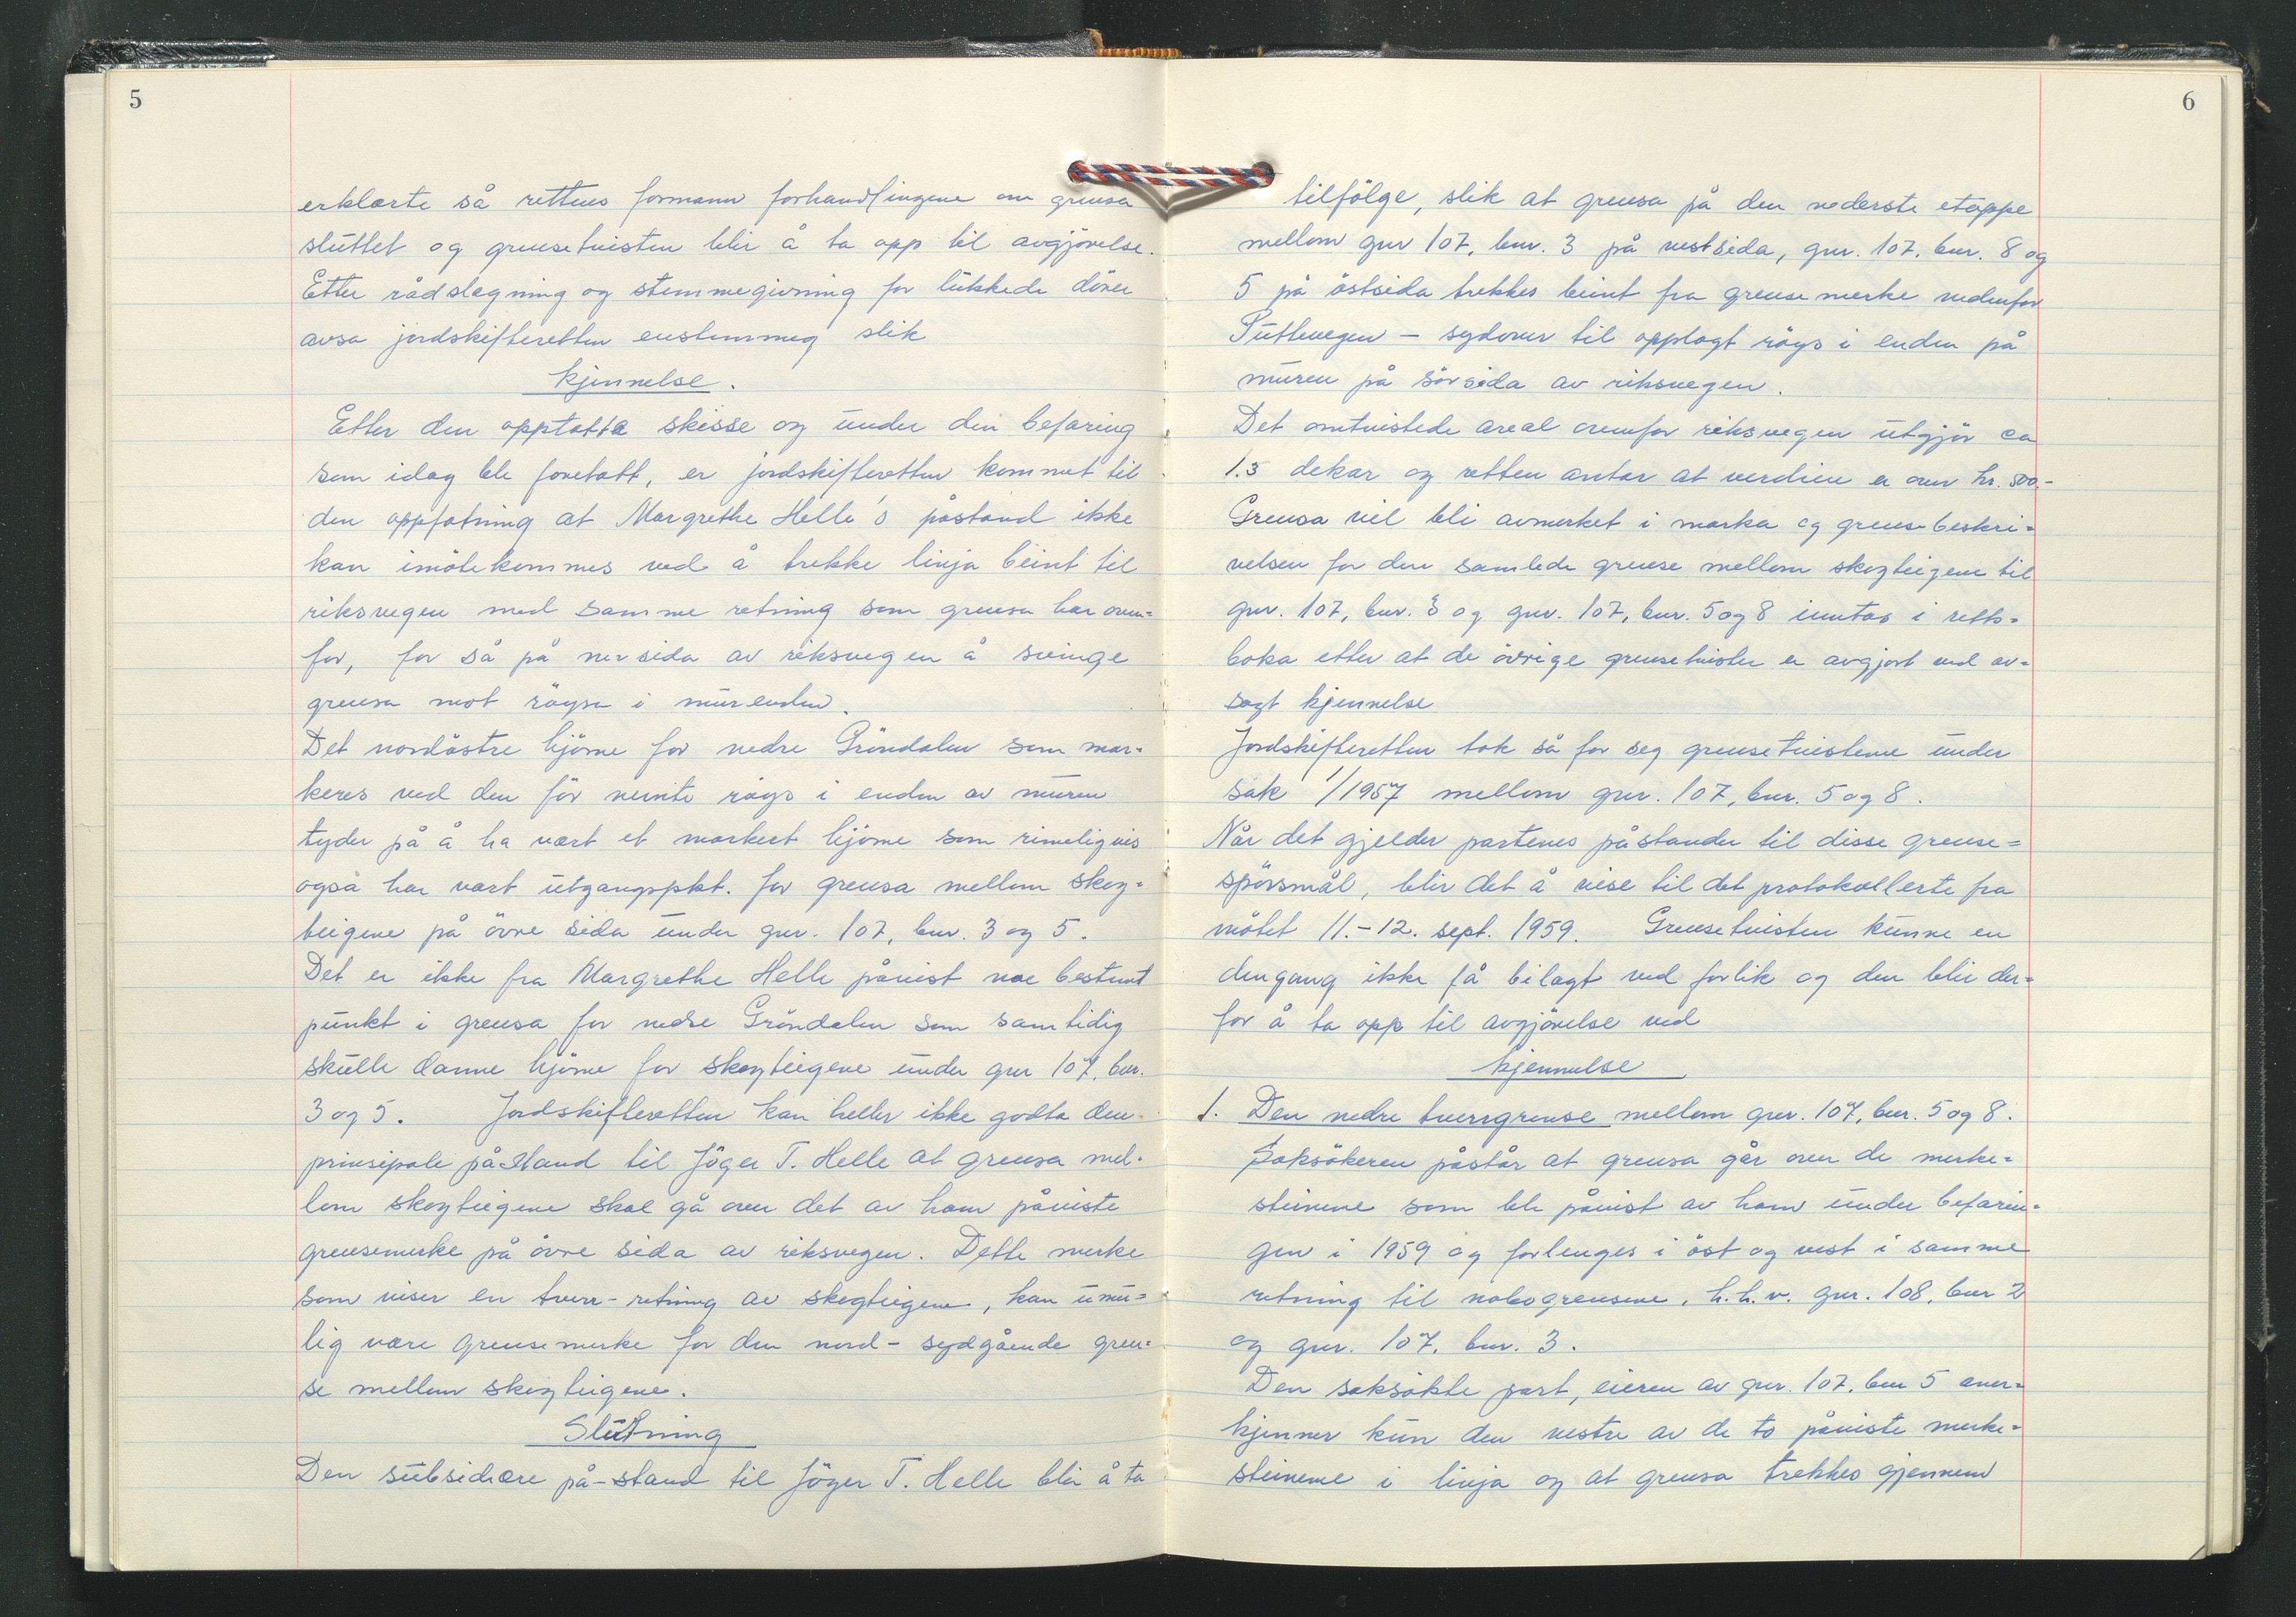 5
erklærte så rettens formann forhandlingene om grensa
sluttet og grensetvisten blir å ta opp til avgjörelse.
Etter rådslagning og stemmegivning for lukkede dörer
avsa jordskifteretten enstemmig slik
kjennelse.
Etter den opptatte skisse og under den befaring
som idag ble foretatt, er jordskifteretten kommet til
den oppfatning at Margrethe Helle's påstand ikke
kan imötekommes ved å trekke linja beint til
riksvegen med samme retning som grensa har oven=
for, for så på nersida av riksvegen å svinge
grensa mot röysa i murenden.
Det nordöstre hjörne for nedre Gröndalen som mar=
keres ved den för nemnte röys i enden av muren
tyder på å ha vært et markert hjörne som rimeligvis
også har vært utgangspkt. for grensa mellom skog=
teigene på övre sida under gnr. 107, bnr. 3 og 5.
Det er ikke fra Margrethe Helle påvist noe bestemt
punkt i grensa for nedre Gröndalen som samtidig
skulle danne hjörne for skogteigene under gnr 107, bnr.
3 og 5. Jordskifteretten kan heller ikke godta den
prinsipale påstand til Jöger T. Helle at grensa mel=
lom skogteigene skal gå over det av ham påviste
grensemerke på övre sida av riksvegen. Dette merke
som viser en tverr-retning av skogteigene, kan umu=
lig være grensemerke for den nord-sydgående gren=
se mellom skogteigene.
Slutning
Den subsidiære på-stand til Jöger T. Helle blir å ta
6
tilfölge, slik at grensa på den nederste etappe
mellom gnr 107, bnr. 3 på vestsida, gnr. 107, bnr. 8 og
5 på östsida trekkes beint fra grensemerke nedenfor
Puttevegen - sydover til opplagt röys i enden på
muren på sörsida av riksvegen.
Det omtvistede areal ovenfor riksvegen utgjör ca
1.5 dekar og retten antar at verdien er over kr. 500.-
Grensa vil bli avmerket i marka og grensebeskri=
velsen for den samlede grense mellom skogteigene til
gnr. 107, bnr. 3 og gnr. 107, bnr. 5 og 8 inntas i retts=
boka etter at de övrige grensetvister er avgjort ved av=
sagt kjennelse
Jordskifteretten tok så for seg grensetvistene under
sak 1/1957 mellom gnr. 107, bnr. 5 og 8.
Når det gjelder partenes påstander til disse grense=
spörsmål, blir det å vise til det protokollerte fra
mötet 11.-12. sept. 1959. Grensetvisten kunne en
dengang ikke få bilagt ved forlik og den blir der=
for å ta opp til avgjörelse ved
kjennelse
1. Den nedre tverrgrense mellom gnr. 107, bnr. 5 og 8.
Saksökeren påstår at grensa går over de merke=
steinene som ble påvist av ham under befarin=
gen i 1959 og forlenges i öst og vest i samme
retning til nabogrensene, h.h.v. gnr. 108, bnr 2
og gnr. 107, bnr. 3.
Den saksökte part, eieren av gnr. 107, bnr 5 aner=
kjenner kun den vestre av de to påviste merke=
steinene i linja og at grensa trekkes gjennem